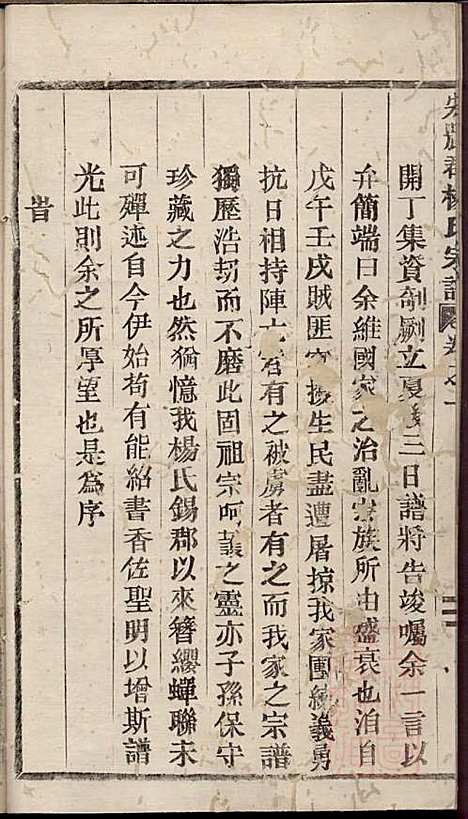 開丁集資剞劂立夏後三日譜將告竣囑余一言以
弁簡端曰余維國家之治亂宗族所由盛衰也洎自
戊午壬戌賊匪擾生民盡遭屠掠我家團練義勇
抗日相持陣亡者有之被虜者有之而我家之宗譜
獨歷浩刧而不磨此固祖宗呵護之靈亦子孫保守
珍藏之力也然猶憶我楊氏錫郡以來簪纓蟬聯未
可殫述自今伊始苟有能紹書香佐聖明以增斯譜
光此則余之所厚望也是為序
旹
弘農郡楊氏宗譜 卷之一